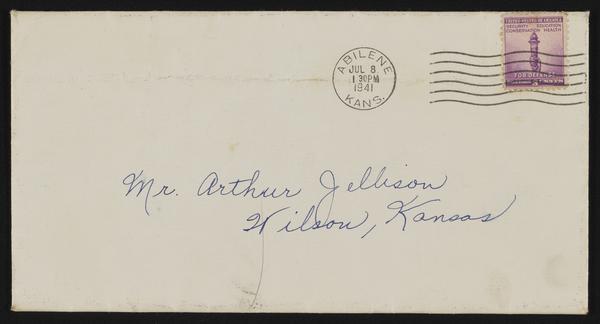 UNITED STATES OF AMERICA
SECURITY EDUCATION
CONSERVATION HEALTH
FOR DEFENSE
CENTS
ABILENE
JUL 8
1 30PM
1941
KANS.
Mr. Arthur Jellison
Wilson, Kansas